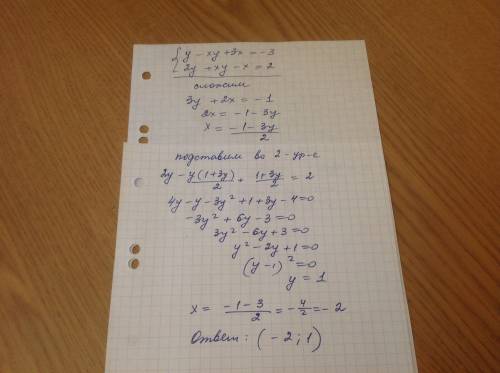 { y - xy + 3x = -3
2y + xy - x = 2
сложим
3y + 2x = -1
2x = -1 - 3y
x = (-1 - 3y)/2
подставим во 2-ур-е
2y - y(1+3y)/2 + (1+3y)/2 = 2
4y - y - 3y² + 1 + 3y - 4 = 0
-3y² + 6y - 3 = 0
3y² - 6y + 3 = 0
y² - 2y + 1 = 0
(y - 1)² = 0
y = 1
x = (-1 - 3)/2 = -4/2 = -2
Ответ: (-2; 1)